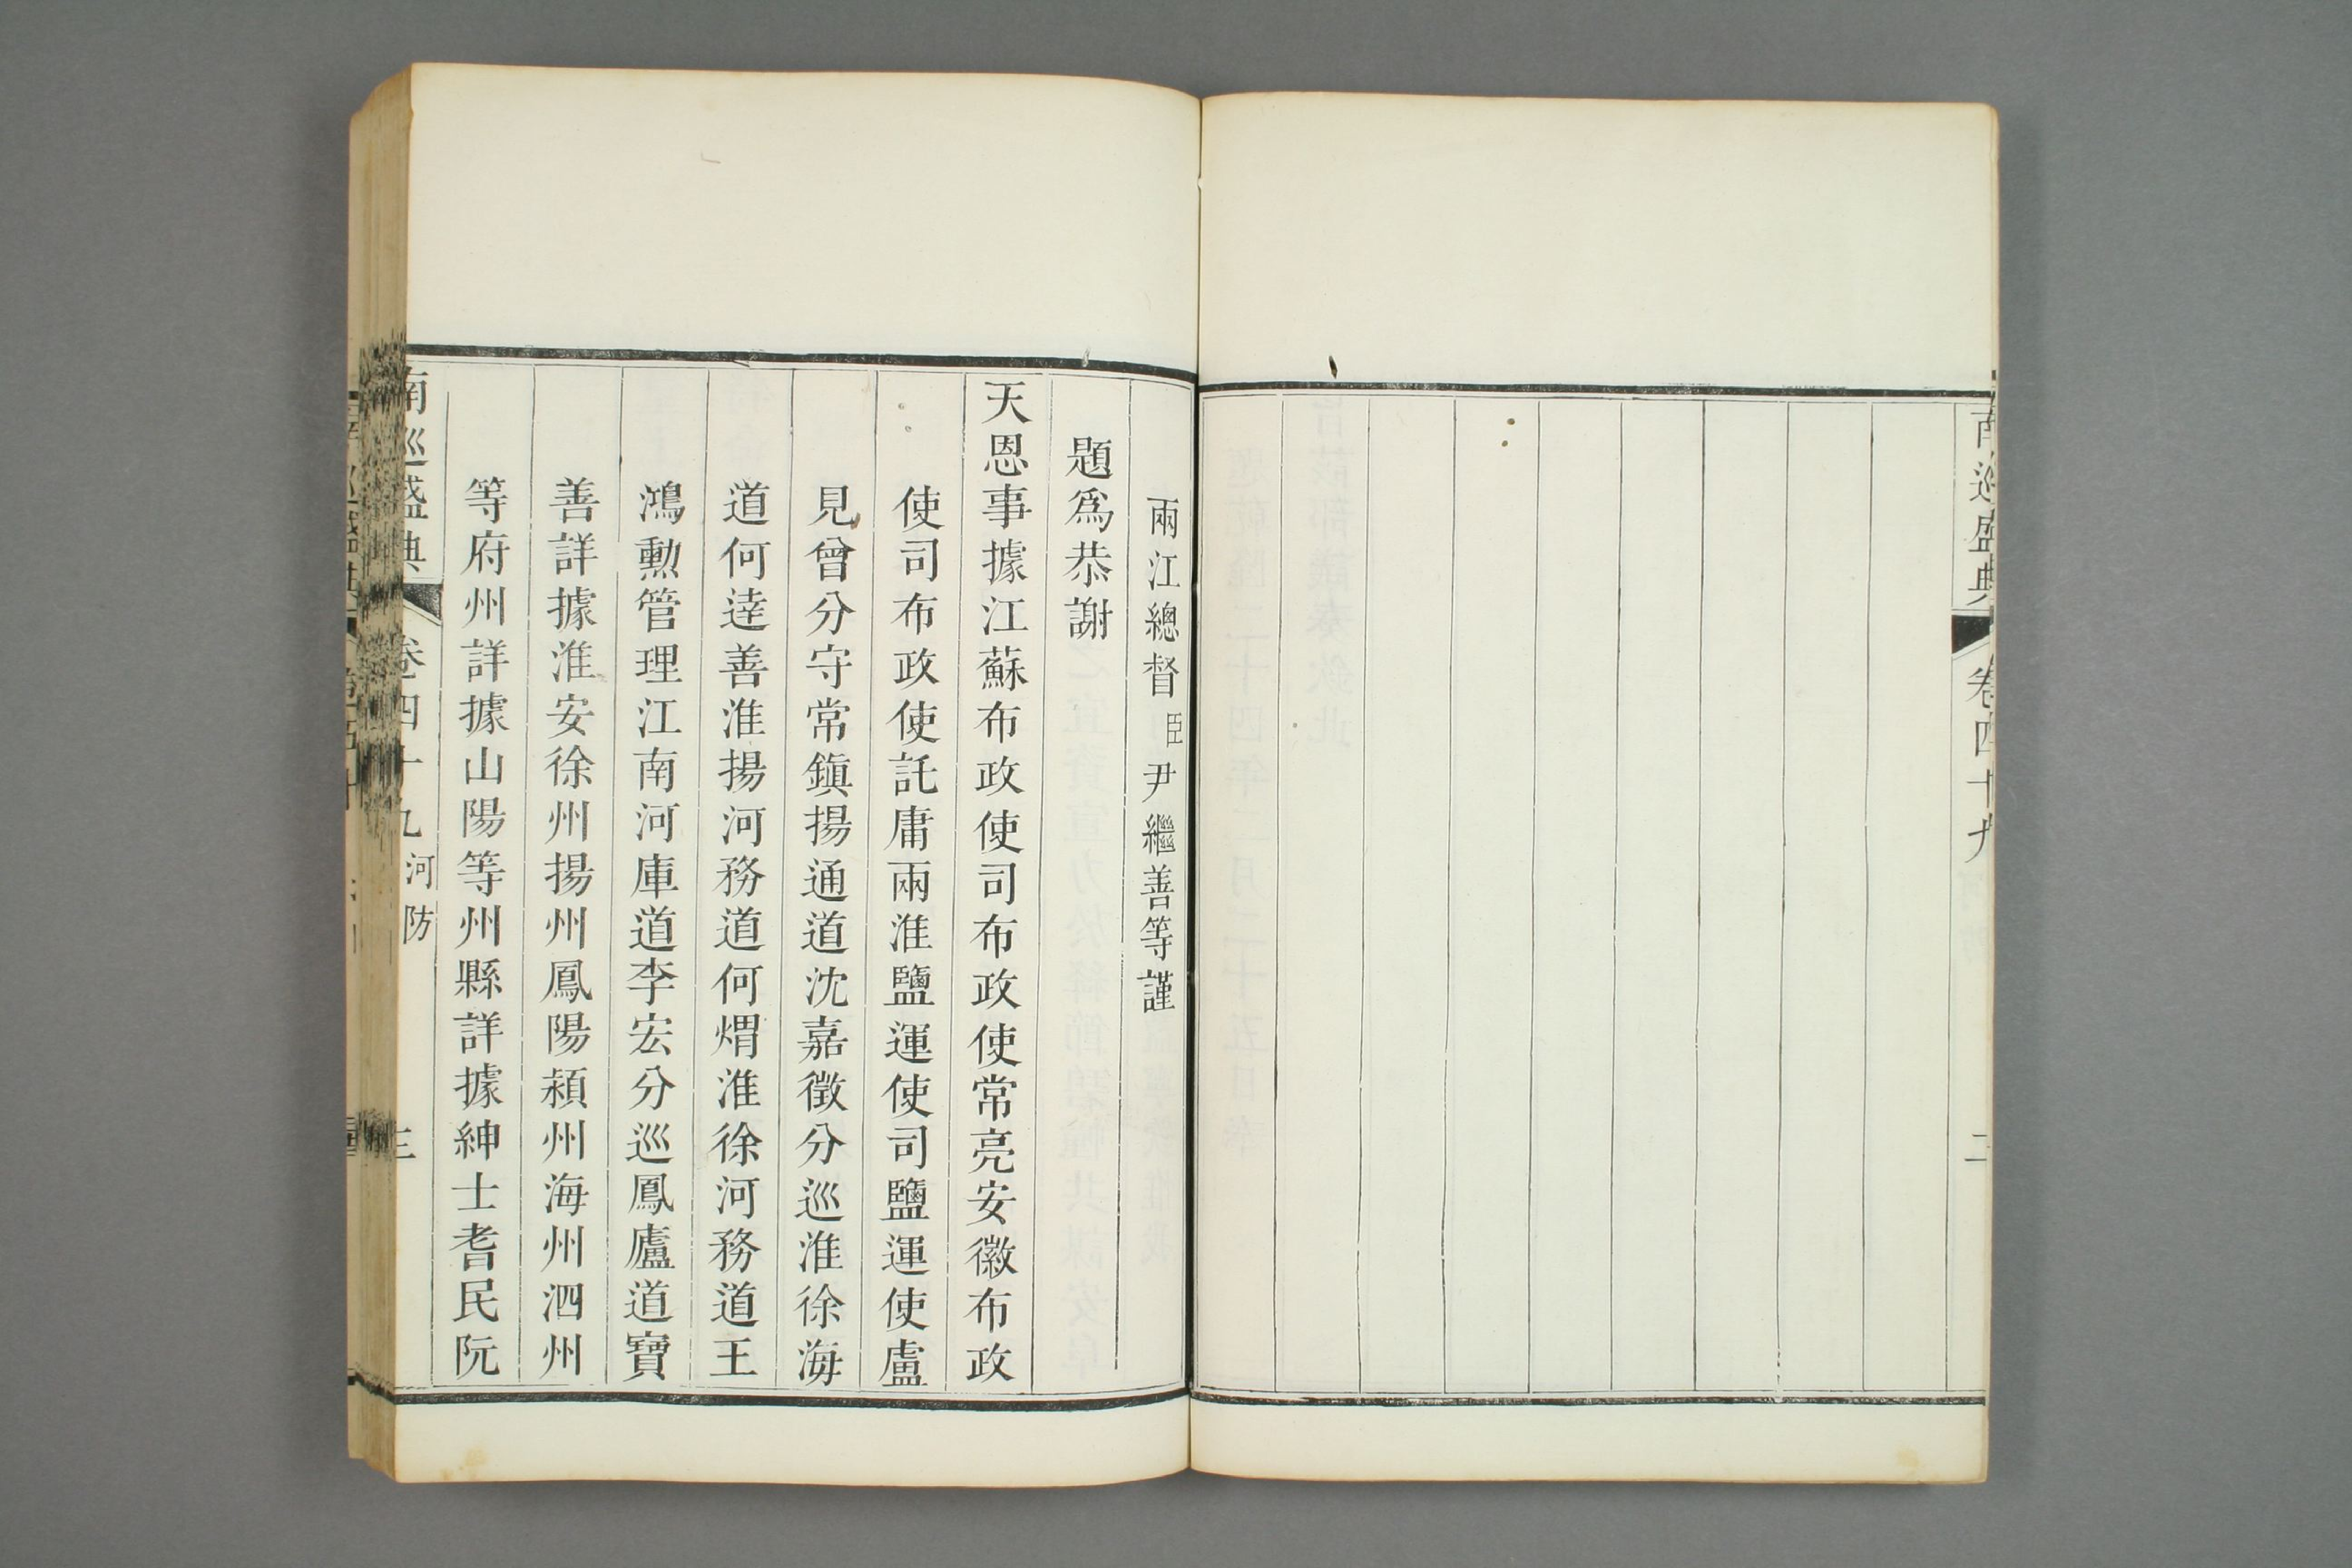 南巡盛典 卷四十九 二
兩江總督臣尹繼善等謹
題爲恭謝
天恩事據江蘇布政使司布政使常亮安徽布政
使司布政使託庸兩淮鹽運使司鹽運使盧
見曾分守常鎭揚通道沈嘉徵分巡淮徐海
道何逹善淮揚河務道何煟淮徐河務道王
鴻勳管理江南河庫道李宏分巡鳳廬道寶
善詳據淮安徐州揚州鳳陽潁州海州泗州
等府州詳據山陽等州縣詳據紳士耆民阮
南巡盛典 卷四十九 河防 三